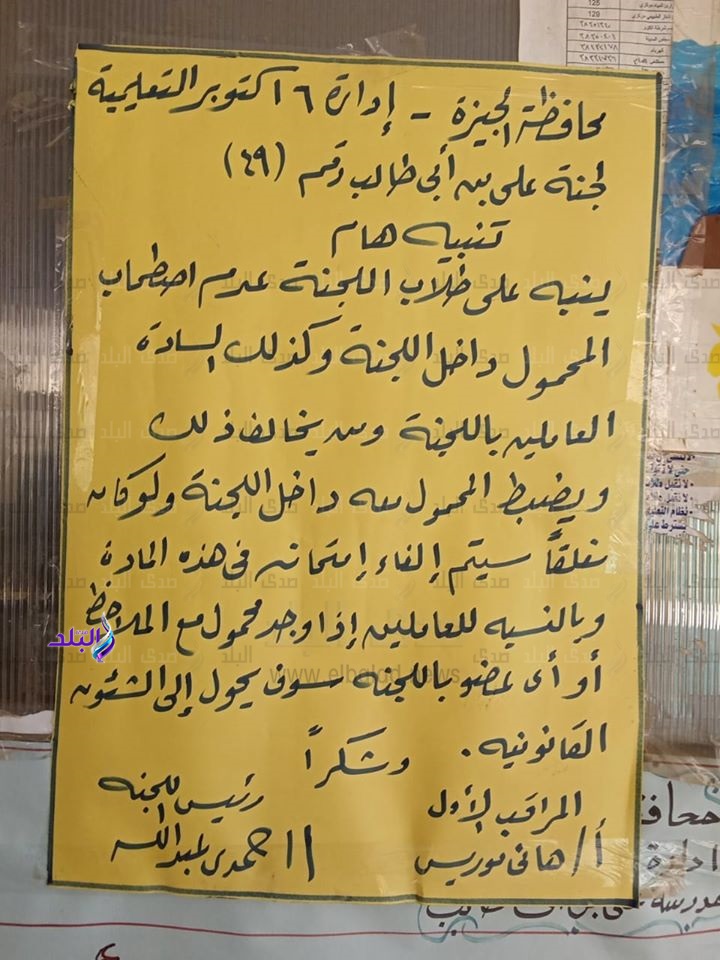 محافظة الجيزة - إدارة ٦ أكتوبر التعليمية
لجنة على بن أبى طالب رقم (٤٩)
تنبيه هام
ينبه على طلاب اللجنة عدم اصطحاب
المحمول داخل اللجنة وكذلك السادة
العاملين باللجنة ومن يخالف ذلك
ويضبط المحمول معه داخل اللجنة ولو كان
مغلقاً سيتم إلغاء إمتحانه فى هذه المادة
وبالنسبه للعاملين إذا وجد محمول مع الملاحظ
أو أى عضو باللجنه سوف يحول إلى الشئون
القانونيه . وشكراً
المراقب الأول
أ/ هانى موريس
رئيس اللجنه
أ/ حمدى عبدالله
صدى البلد
www.elbalad.news
البلد
125
129
محافظ
إدارة
مدرسة على بن أبى طالب